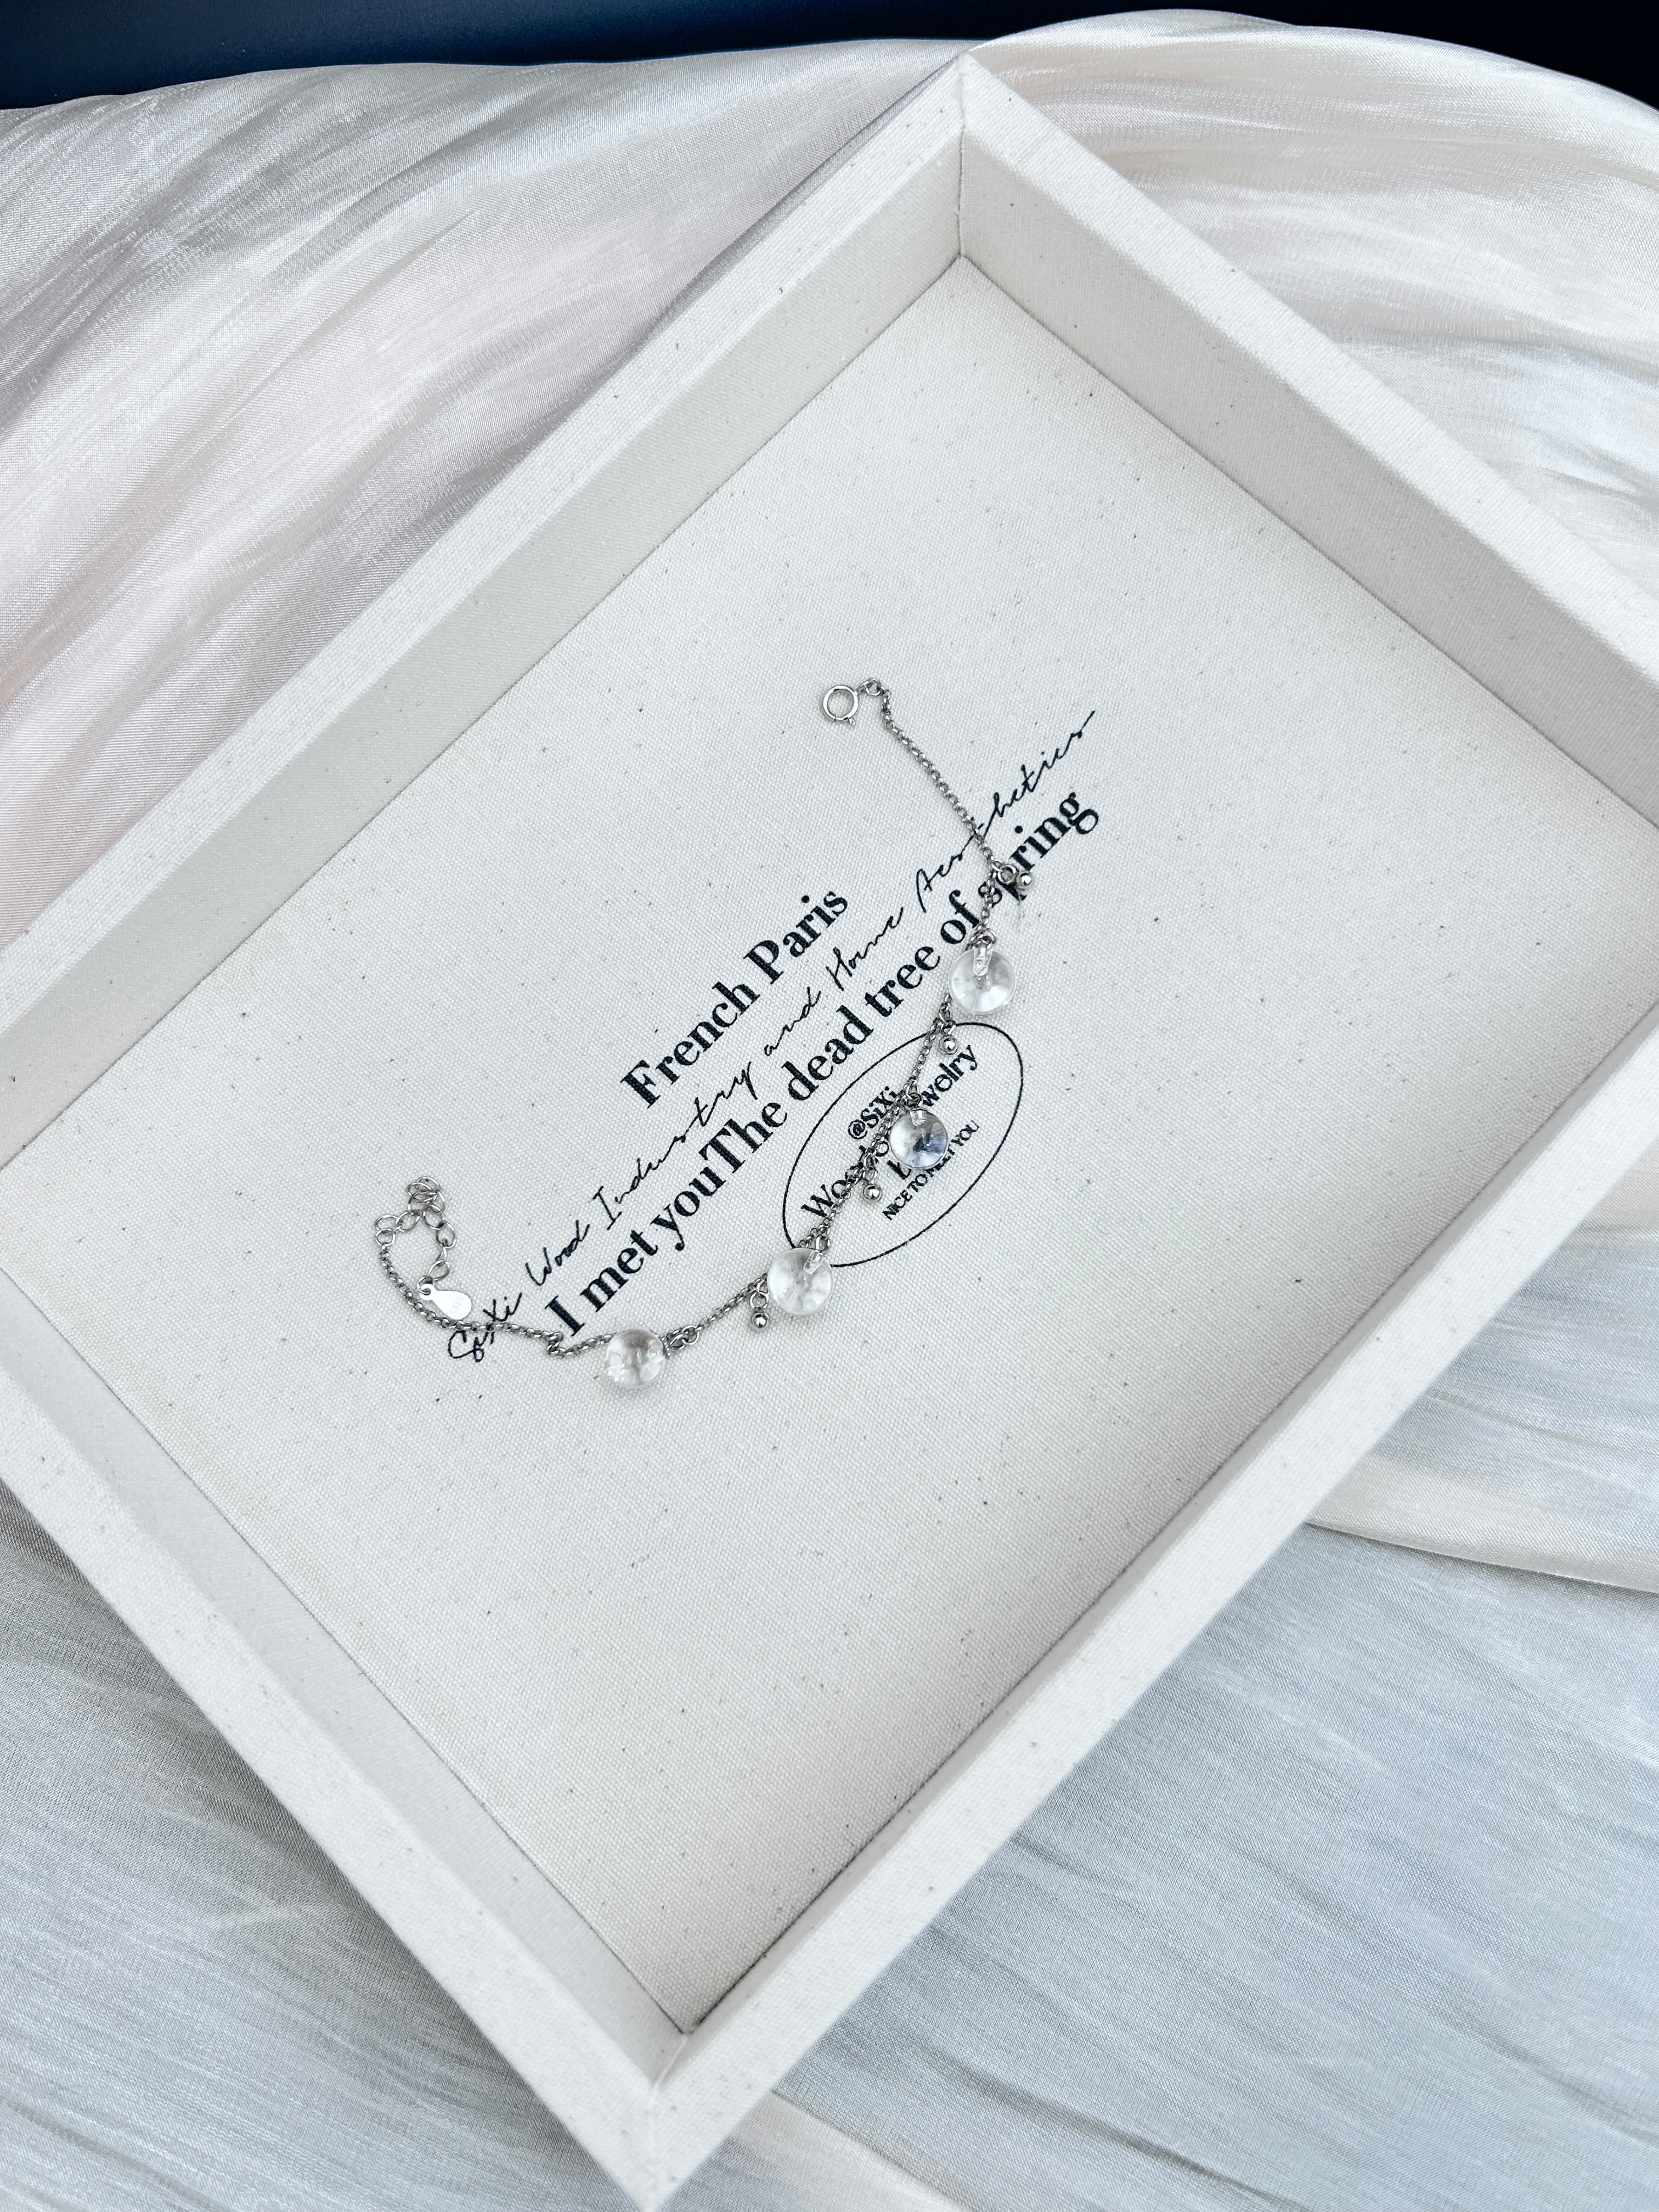 French Paris
SiXi Wood Industry and Home Aesthetics
I met youThe dead tree of spring
@SiXi
NICE TO MEET YOU